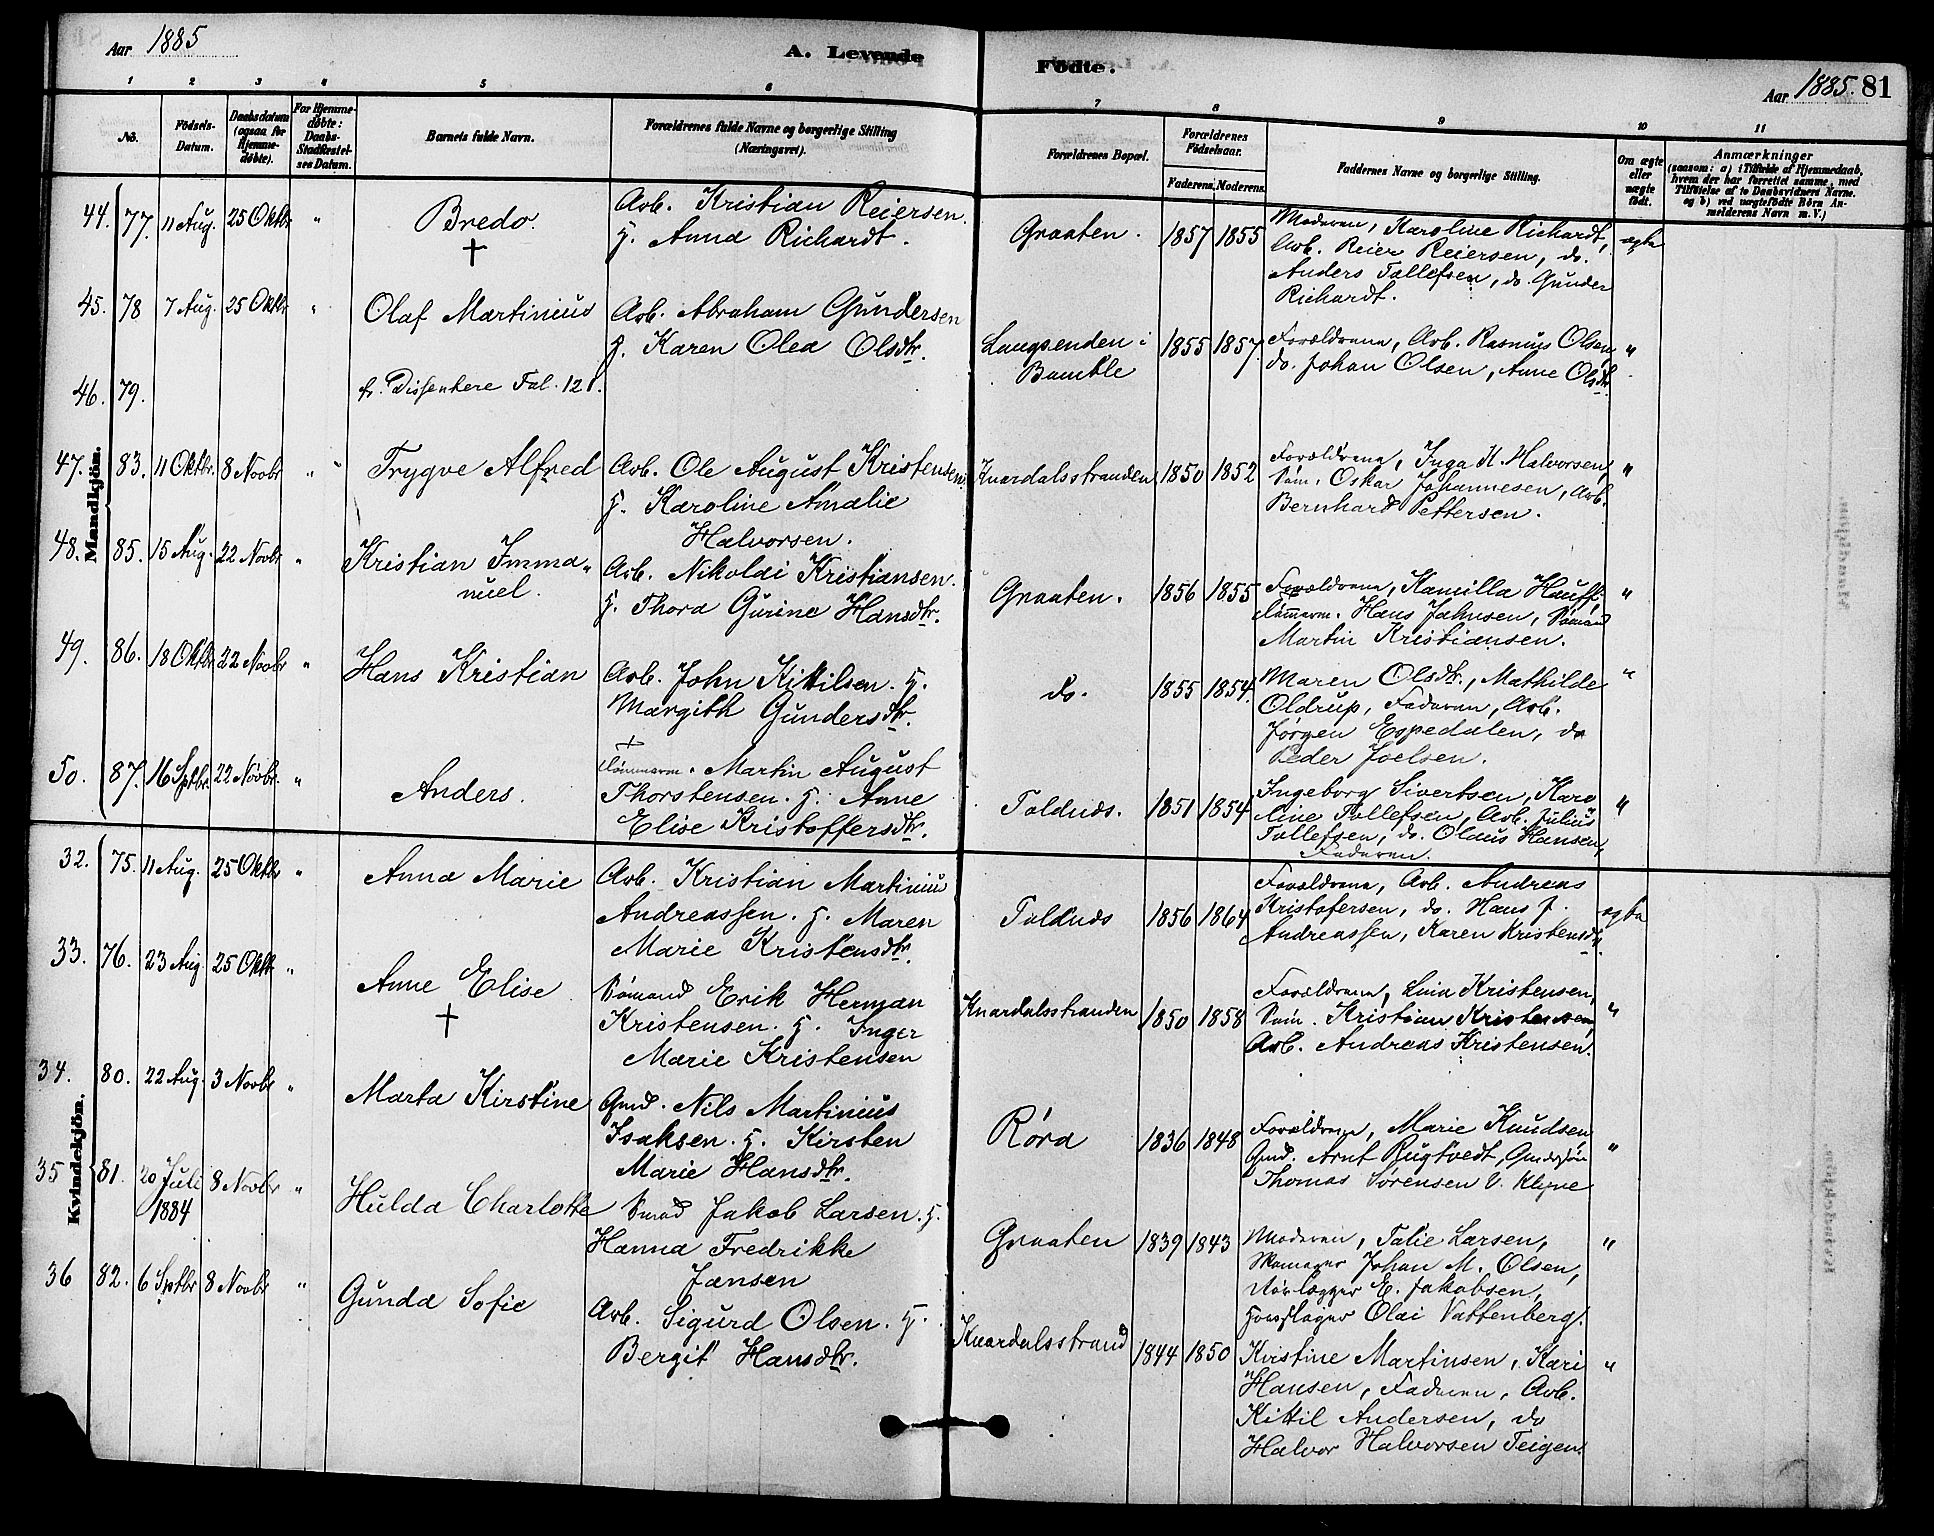 Aar 1885
A. Levende
Fødte.
Aar 1885. 81
1 2 3 4 5 6 7 8 9 10 11
No.
Fødsels-
Datum.
Daabsdatum
(ogsaa for
Hjemme-
døbte).
For Hjemme-
døbte:
Daabs-
Stadfæstel-
ses Datum.
Barnets fulde Navn.
Forældrenes fulde Navne og borgerlige Stilling
(Næringsvei).
Forældrenes Bopæl.
Forældrenes
Fødselsaar.
Faderens. Moderens.
Faddernes Navne og borgerlige Stilling.
Om ægte
eller
uægte
født.
Anmærkninger
(saasom: a) i Tilfælde af Hjemmedaab,
hvem der har forrettet samme, med
Tilføielse af to Daabsvidners Navne.
og b) ved uægtefødte Børn An-
melderens Navn m.V.)
Mandkjön.
44. 77. 11 Aug. 25 Oktbr " Bredo. †
Arb. Kristian Reiersen.
H. Anna Richardt.
Graaten. 1857 1855
Moderen, Karoline Richardt,
Arb. Reier Reiersen, do.
Anders Tollefsen, do. Gunder
Richardt.
ægte
45. 78 7 Aug. 25 Oktbr " Olaf Martinius
Arb. Abraham Gundersen
H. Karen Olea Olsdtr.
Langsenden i
Bamble
1855 1857.
Forældrene, Arb. Rasmus Olsen,
do. Johan Olsen, Anne Olsdtr.
"
46. 79.
fr. Dissentere Fol. 121.
47. 83. 11 Oktbr. 8 Novbr " Trygve Alfred
Arb. Ole August Kristensen.
H. Karoline Amalie
Halvorsen.
Knardalsstranden 1850 1852
Forældrene, Inga H. Halvorsen,
Søm. Oskar Johannesen, Arb.
Bernhard Pettersen.
"
48. 85. 15 Aug. 22 Novbr " Kristian Imma-
nuel.
Arb. Nikolai Kristiansen.
H. Thora Gurine Hansdtr.
Graaten. 1856 1855
Forældrene, Kamilla Hauff,
Tømmerm. Hans Jahnsen, Sømand
Martin Kristiansen.
"
49. 86. 18 Oktbr 22 Novbr " Hans Kristian
Arb. John Kittilsen. H.
Margith Gundersdtr.
do. 1855 1854.
Maren Olsdtr., Mathilde
Oldrup, Faderen, Arb.
Jørgen Espedalen, do
Peder Joelsen.
"
50. 87. 16 Sptbr. 22 Novbr. " Anders.
†
Tømmerm. Martin August
Thorstensen. H. Anne
Elise Kristoffersdtr.
Toldnæs. 1851 1854
Ingeborg Sivertsen, Karo
line Tollefsen, Arb. Julius
Tollefsen, do. Olaus Hansen,
Faderen.
"
Kvindekjön.
32. 75. 11 Aug. 25 Oktbr " Anna Marie
Arb. Kristian Martinius
Andreassen. H. Maren
Marie Kristensdtr.
Toldnæs 1856 1864
Forældrene, Arb. Andreas
Kristofersen, do. Hans J.
Andreassen, Karen Kristensdtr.
ægte
33. 76. 23 Aug 25 Oktbr " Anne Elise †
Sømand Erik Herman
Kristensen. H. Inger
Marie Kristensen
Knardalsstranden 1850 1858
Forældrene, Lina Kristensen,
Søm. Kristian Kristensen,
Arb. Andreas Kristensen.
"
34. 80. 22 Aug. 3 Novbr " Marta Kirstine
Gmd. Nils Martinius
Isaksen. H. Kirsten
Marie Hansdtr.
Røra 1836 1848
Forældrene, Marie Knudsen
Gmd. Arnt Rugtvedt, Gaardsføder
Thomas Sørensen V. Klyve
"
35 81. 20 Juli
1884
8 Novbr " Hulda Charlotte
Smed Jakob Larsen. H.
Hanna Fredrikke
Jansen
Graaten 1839 1843
Moderen, Talie Larsen,
Skomager Johan M. Olsen,
Rørlægger E. Jakobsen,
Forslager Olai Vattenberg.
"
36 82. 6 Sptbr 8 Novbr " Gunda Sofie
Arb. Sigurd Olsen. H.
Bergit Hansdtr.
Knardalsstrand 1844 1850
Kirstine Martinsen, Kari
Hansen, Faderen, Arb.
Kittil Andersen, do
Halvor Halvorsen Teigen.
"